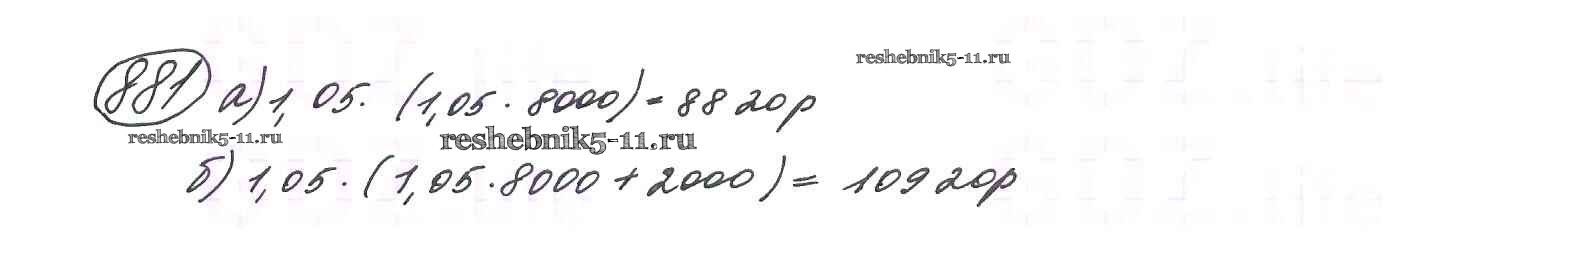 reshebnik5-11.ru
881 а) 1,05 · (1,05 · 8000) = 8820р
reshebnik5-11.ru
reshebnik5-11.ru
б) 1,05 · (1,05 · 8000 + 2000) = 10920р